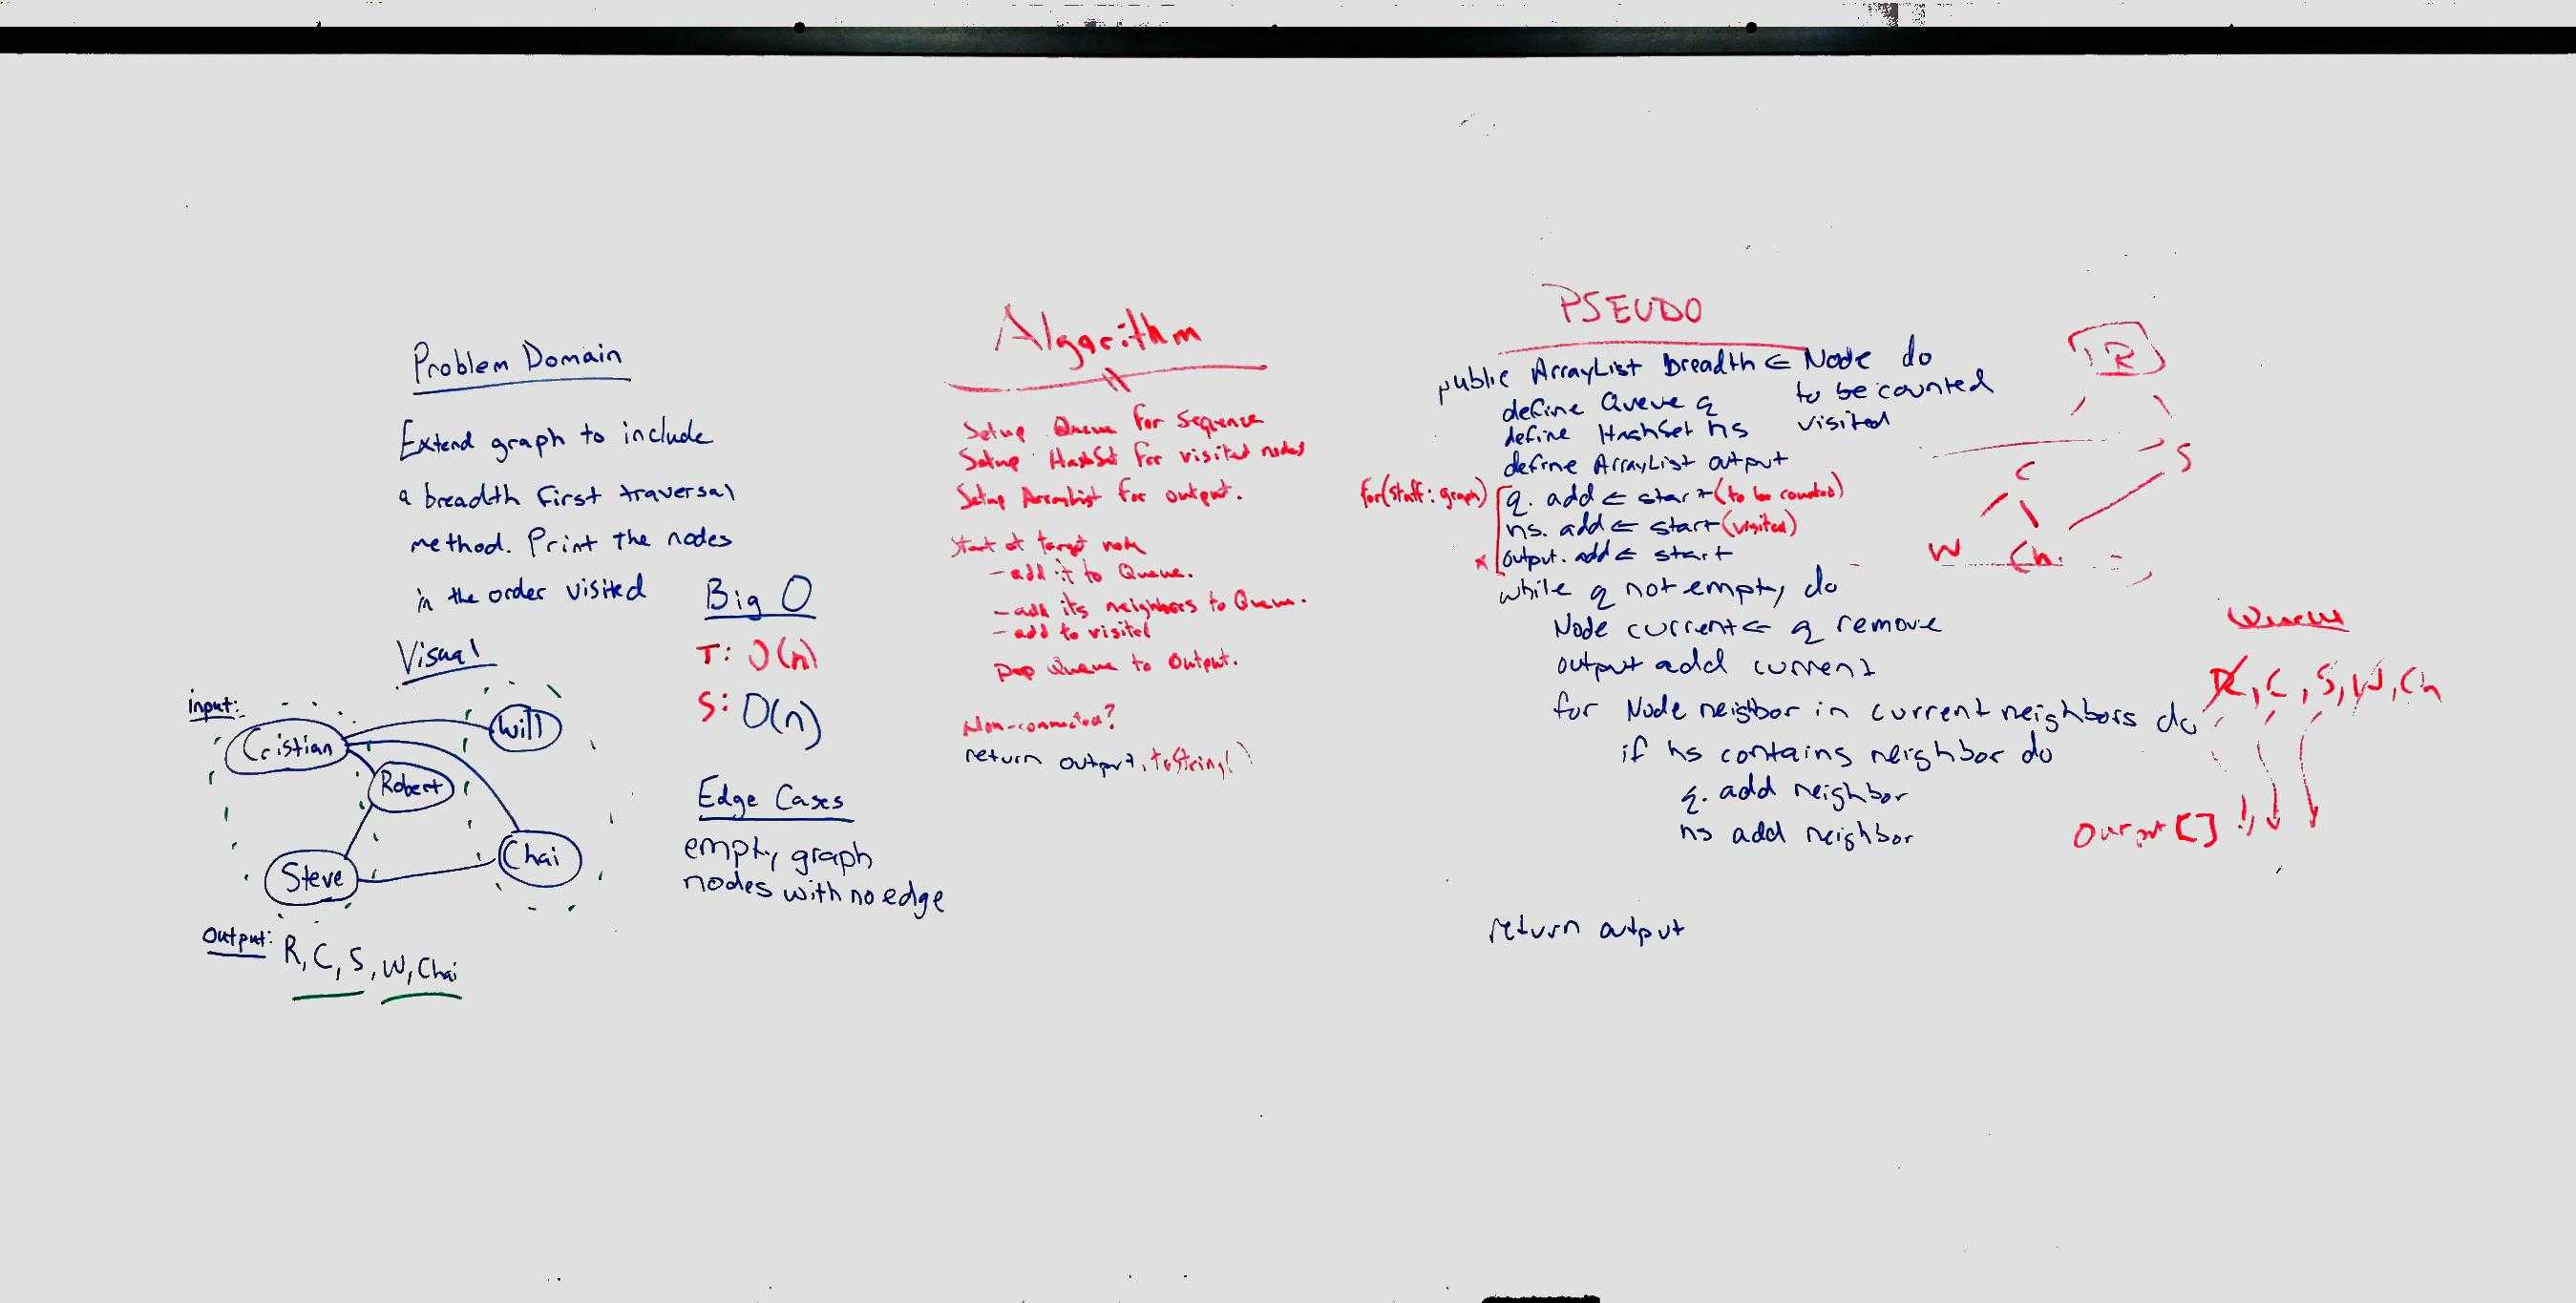 Problem Domain
Extend graph to include
a breadth first traversal
method. Print the nodes
in the order visited
Visual
input:
Cristian
Will
Robert
Steve
Chai
Output: R, C, S, W, Chai
Big O
T: O(n)
S: O(n)
Edge Cases
empty graph
nodes with no edge
Algorithm
Setup Queue for Sequence
Setup HashSet for visited nodes
Setup ArrayList for output.
Start at target node
- add it to Queue.
- add its neighbors to Queue.
- add to visited
Pop Queue to Output.
Non-connected?
return output.toString()
PSEUDO
public ArrayList Breadth ← Node do
define Queue q to be counted
define HashSet hs visited
define ArrayList output
for(staff: graph) q. add ← start (to be counted)
hs. add ← start (visited)
* output. add ← start
while q not empty do
Node current ← q remove
output add current
for Node neighbor in current neighbors do
if hs contains neighbor do
q. add neighbor
hs add neighbor
return output
R
C
S
W
Ch.
Queue
R, C, S, W, Ch
Output []